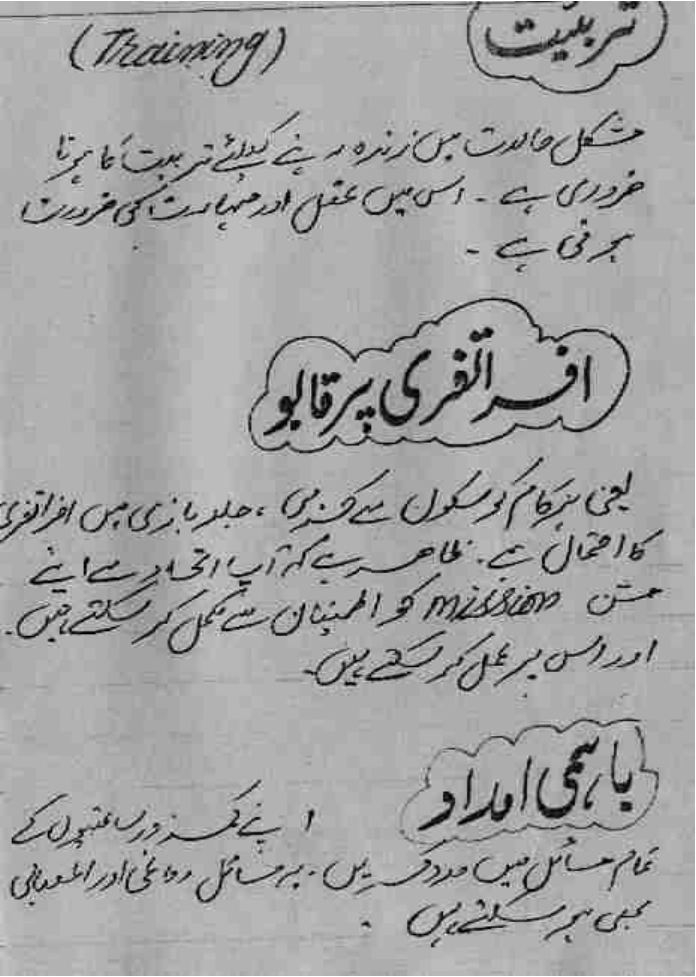 تربیت
(Training)
مشکل حالات میں زندہ رہنے کیلئے تربیت کا ہونا
ضروری ہے ۔ اس میں عقل اور مہارت کی ضرورت
ہوتی ہے ۔
افراتفری پر قابو
یعنی ہر کام کو سکون سے کریں ، جلد بازی میں افراتفری
کا احتمال ہے ۔ ظاہر ہے کہ آپ اتحاد سے اپنے
مشن mission کو اطمینان سے مکمل کر سکتے ہیں ۔
اور اس پر عمل کر سکتے ہیں ۔
باہمی امداد
اپنے کمزور ساتھیوں کے
تمام مسائل میں مدد کریں ۔ یہ مسائل دماغی اور اعصابی
بھی ہو سکتے ہیں